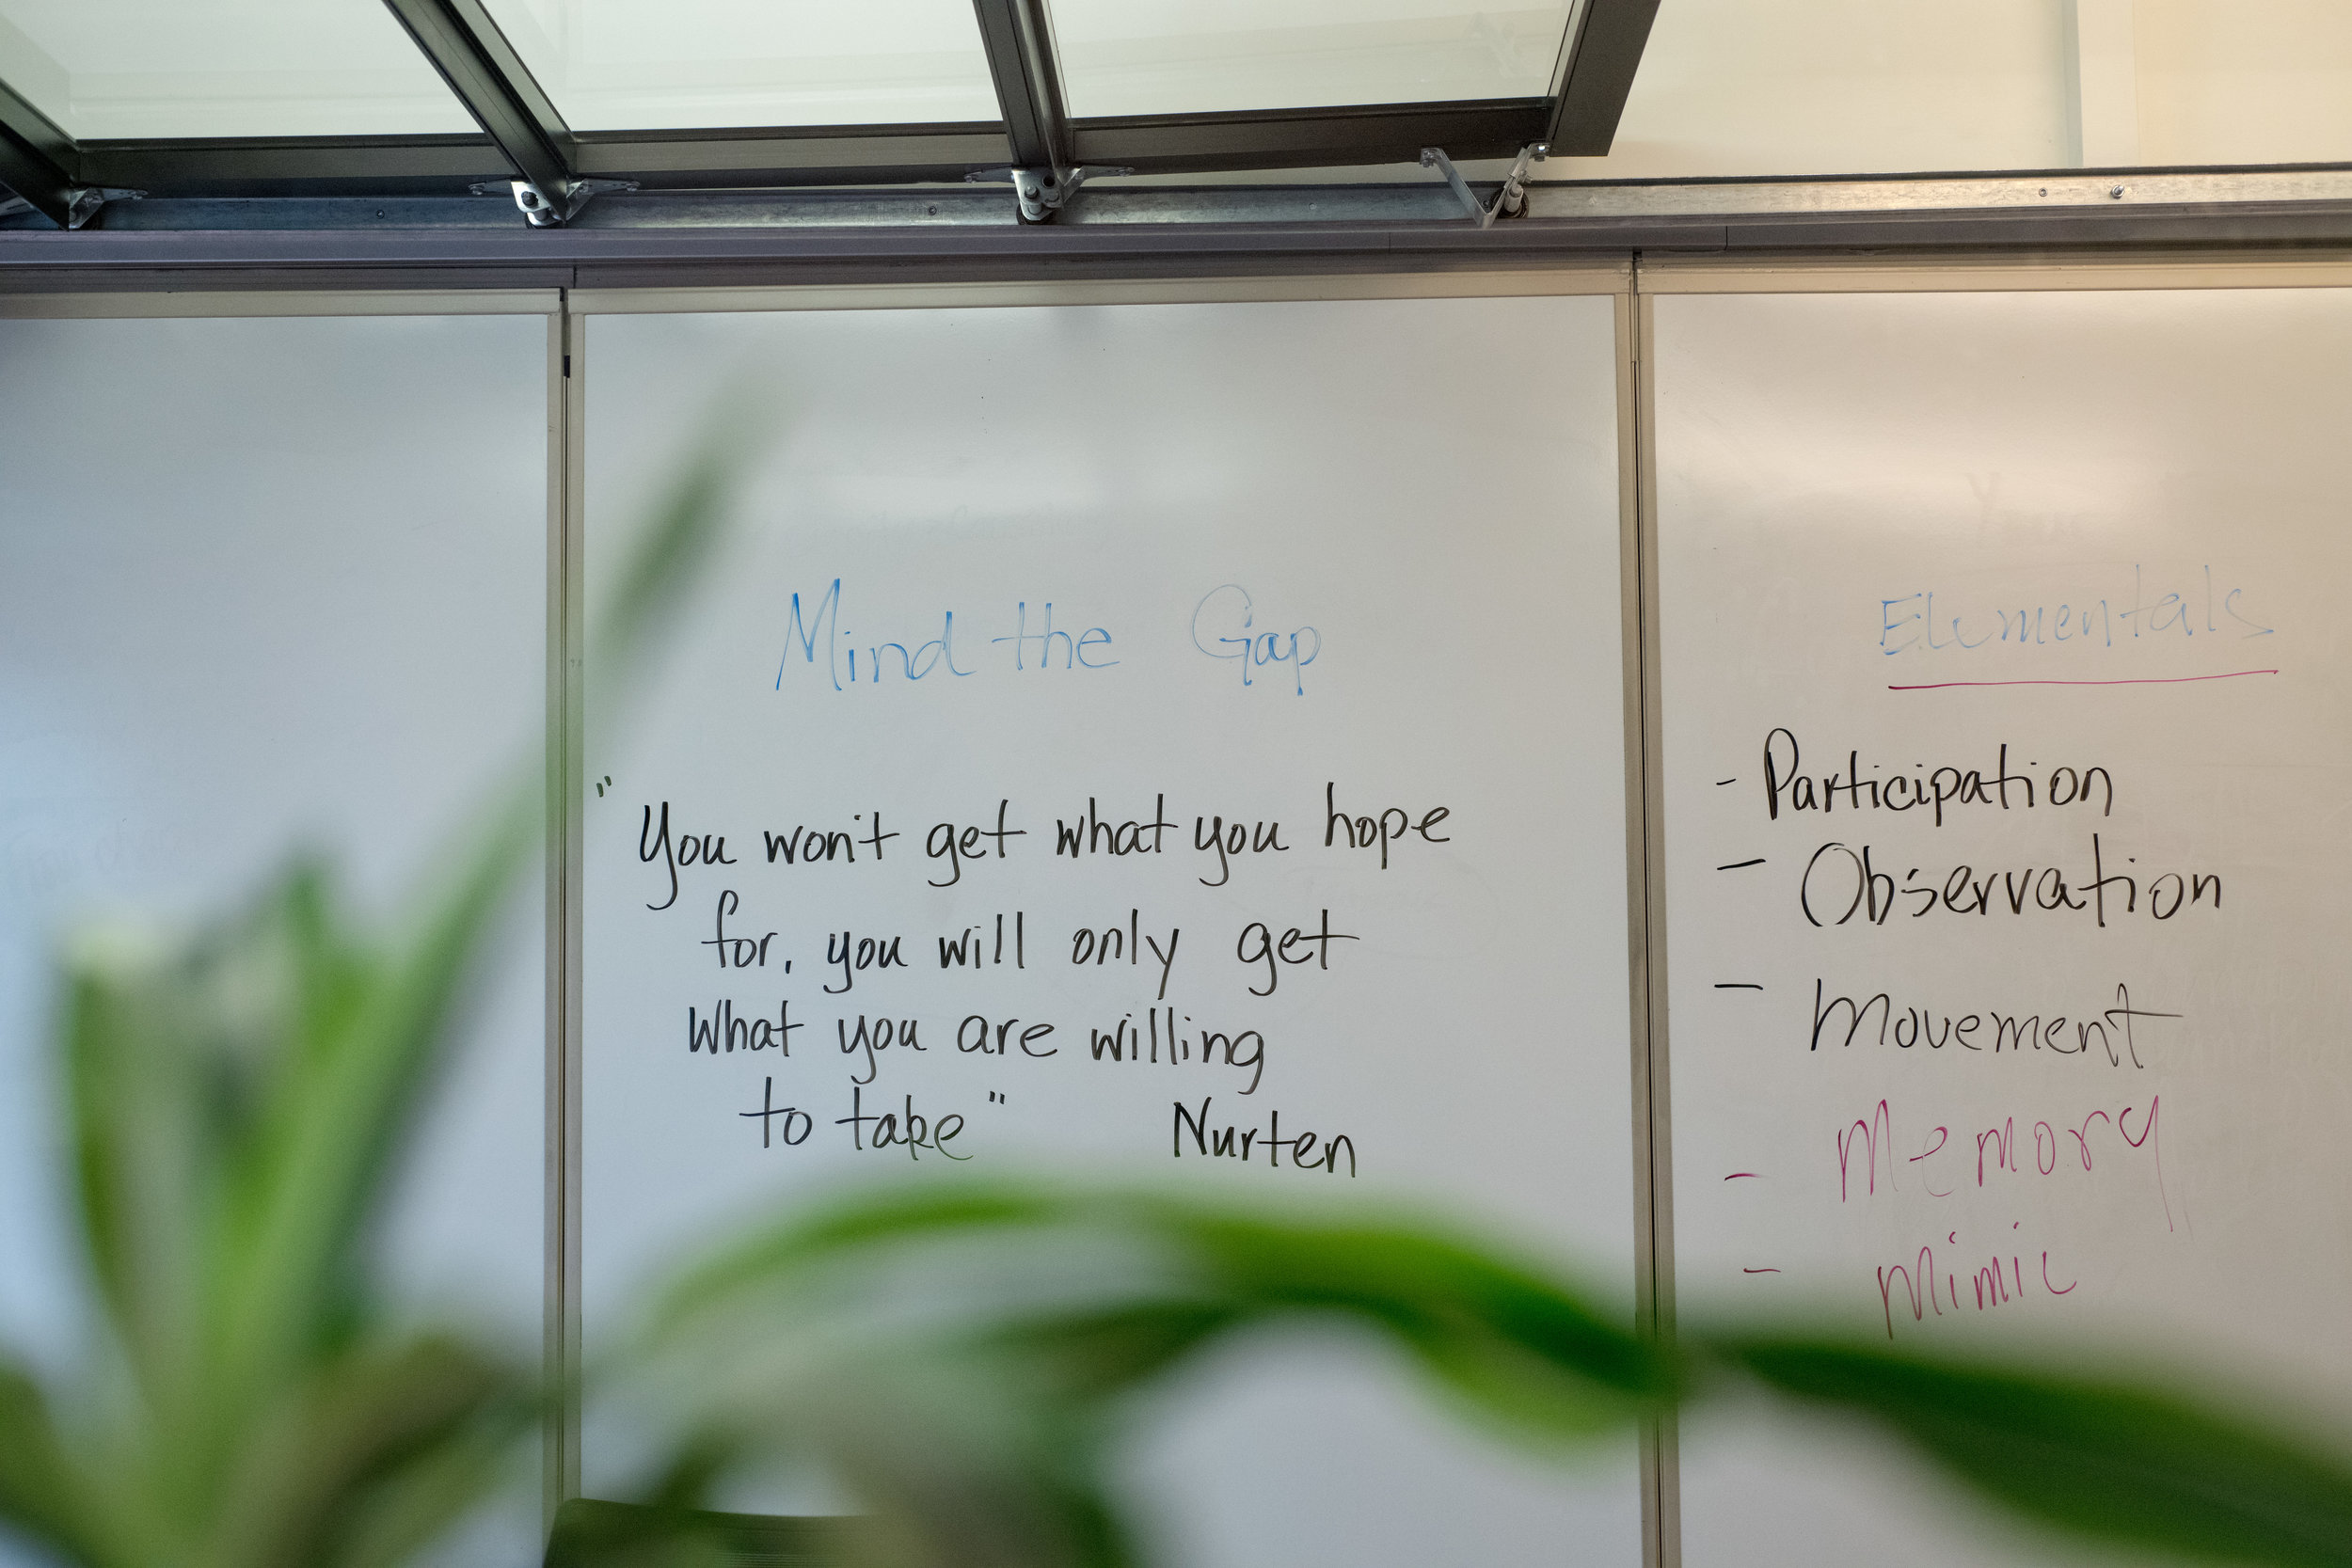 Mind the Gap
"You won't get what you hope
for, you will only get
what you are willing
to take" Nurten
Elementals
- Participation
- Observation
- Movement
- Memory
- Mimic